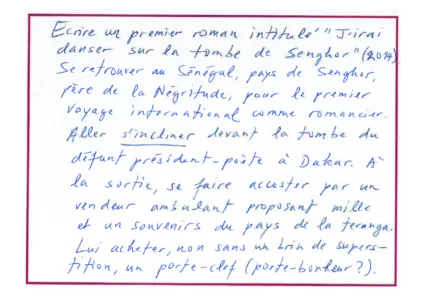 Ecrire un premier roman intitulé "J'irai
danser sur la tombe de Senghor" (2014).
Se retrouver au Sénégal, pays de Senghor,
père de la Négritude, pour le premier
voyage international comme romancier.
Aller s'incliner devant la tombe du
défunt président-poète à Dakar. A
la sortie, se faire accoster par un
vendeur ambulant proposant mille
et un souvenirs du pays de la teranga.
Lui acheter, non sans un brin de supers-
tition, un porte-clef (porte-bonheur ?).